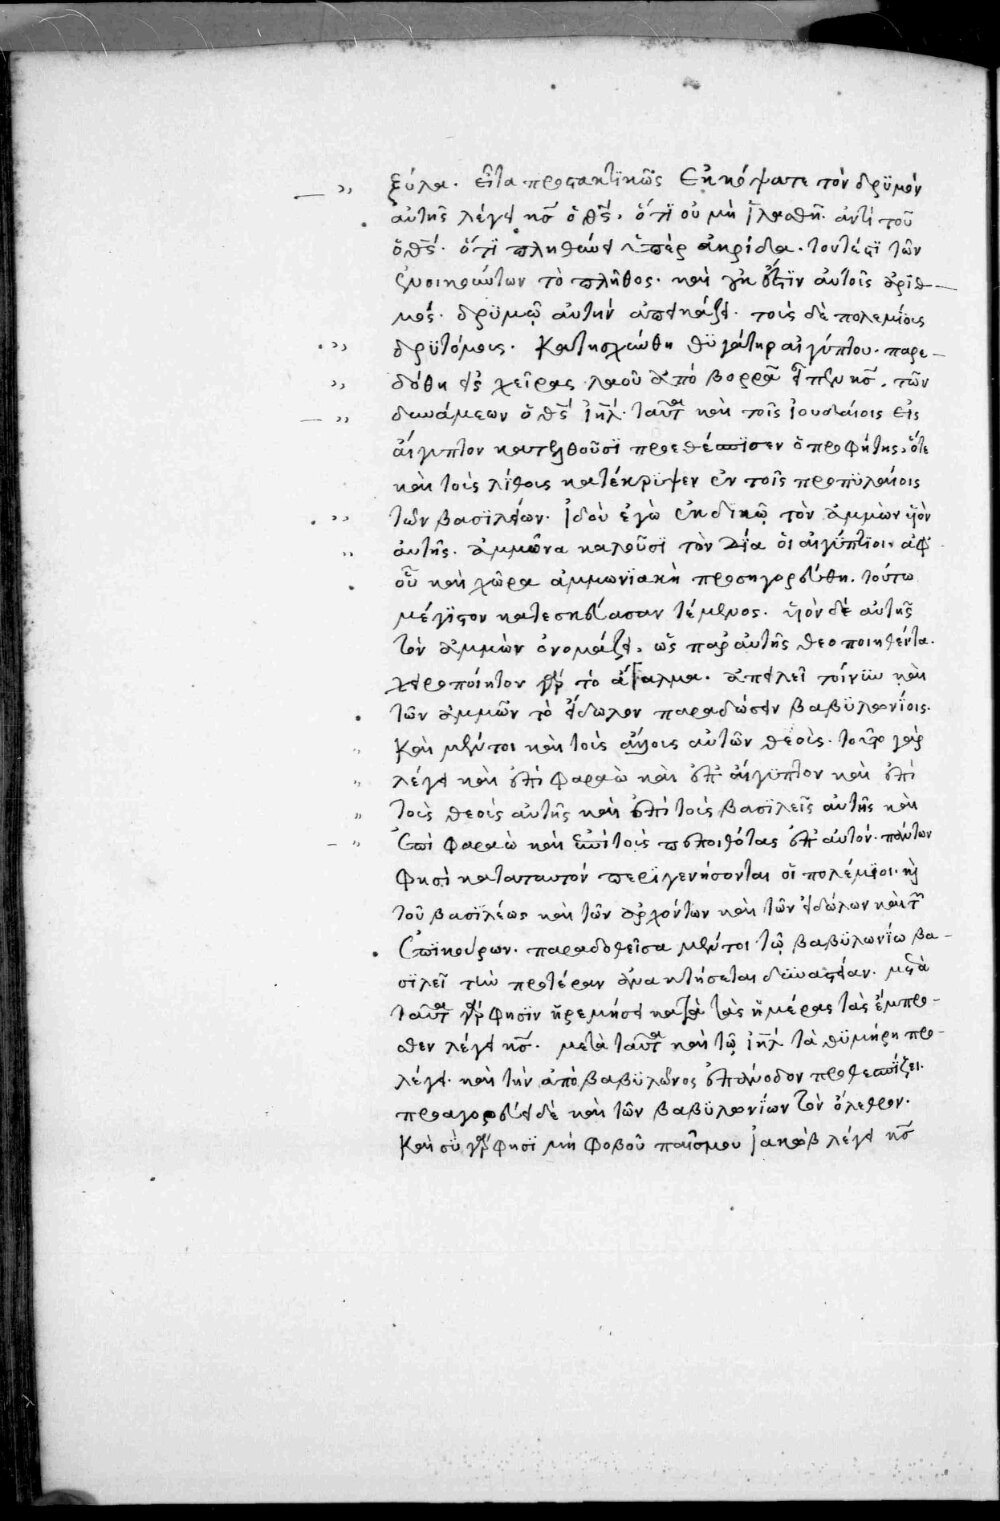 ξύλα. εἶτα προστακτικῶς Ἐκκόψατε τὸν δρϋμὸν
αὐτῆς λέγει κς̅ ὁ θς̅. ὅτϊ οὐ μὴ ἱλασθῆ. ἀντὶ τοῦ
ὁ θς̅. ὅτϊ πληθύνει ὑπὲρ ἀκρίδα. τουτέστϊ τῶν
ἐνοικούντων τὸ πλῆθος. καὶ οὐκ ἔστϊν αὐτοῖς ἀρϊθ-
μός. δρϋμῶ αὐτὴν ἀπεικάζει. τοὺς δὲ πολεμίους
δρϋτόμοις. Κατησχύνθη θϋγάτηρ αἰγύπτου. παρε-
δόθη εἰς χεῖρας λαοῦ ἀπὸ βορρᾶ εἶπεν κς̅. τῶν
δυνάμεων ὁ θς̅ ἰηλ̅. ταῦτα καὶ τοῖς ἰουδαίοις εἰς
αἴγυπτον κατελθοῦσϊ προεθέσπϊσεν ὁ προφήτης, ὅτε
καὶ τοὺς λίθους κατέκρϋψεν ἐν τοῖς προπϋλαίοις
τῶν βασϊλέων. ἰδοὺ ἐγὼ ἐκδϊκῶ τὸν ἀμμὼν υἱὸν
αὐτῆς. ἀμμῶνα καλοῦσϊ τὸν Δία οἱ αἰγύπτϊοι. ἀφ'
οὗ καὶ χώρα ἀμμωνϊακὴ προσηγορεύθη. τούτω
μέγϊστον κατεσκεύασαν τέμενος. υἱὸν δὲ αὐτῆς
τὸν ἀμμὼν ὀνομάζει, ὡς παρ' αὐτῆς θεοποιηθέντα.
χειροποίητον γὰρ τὸ ἄγαλμα. ἀπειλεῖ τοίνϋν καὶ
τῶν ἀμμῶν τὸ εἴδωλον παραδώσειν βαβϋλωνίοις.
Καὶ μέντοι καὶ τοὺς ἄλλους αὐτῶν θεούς. τοῦτο γὰρ
λέγει καὶ ἐπὶ φαραὼ καὶ ἐπ' αἴγυπτον καὶ ἐπὶ
τοὺς θεοὺς αὐτῆς καὶ ἐπὶ τοὺς βασϊλεῖς αὐτῆς καὶ
ἐπὶ φαραὼ καὶ ἐπὶ τοὺς πεποιθότας ἐπ' αὐτόν. πάντων
φησὶ καταταυτὸν περϊγενήσονται οἱ πολέμϊοι. καὶ
τοῦ βασϊλέως καὶ τῶν ἀρχόντων καὶ τῶν εἰδώλων καὶ τῶν
ἐπϊκούρων. παραδοθεῖσα μέντοι τῶ βαβϋλωνίω βα-
σϊλεῖ τὴν προτέραν ἀνακτήσεται δϋναστείαν. μετὰ
ταῦτα γάρ φησϊν ἠρεμήσει κατὰ τὰς ἡμέρας τὰς ἔμπρο-
σθεν λέγει κς̅. μετὰ ταῦτα καὶ τῶ ἰηλ̅ τὰ θϋμήρη προ-
λέγει. καὶ τὴν ἀπὸ βαβϋλῶνος ἐπάνοδον προθεσπίζει.
προαγορεύει δὲ καὶ τῶν βαβϋλωνίων τὸν ὄλεθρον.
Καὶ σὺ γάρ φησϊ μὴ φοβοῦ παῖς μου ἰακὼβ λέγει κς̅